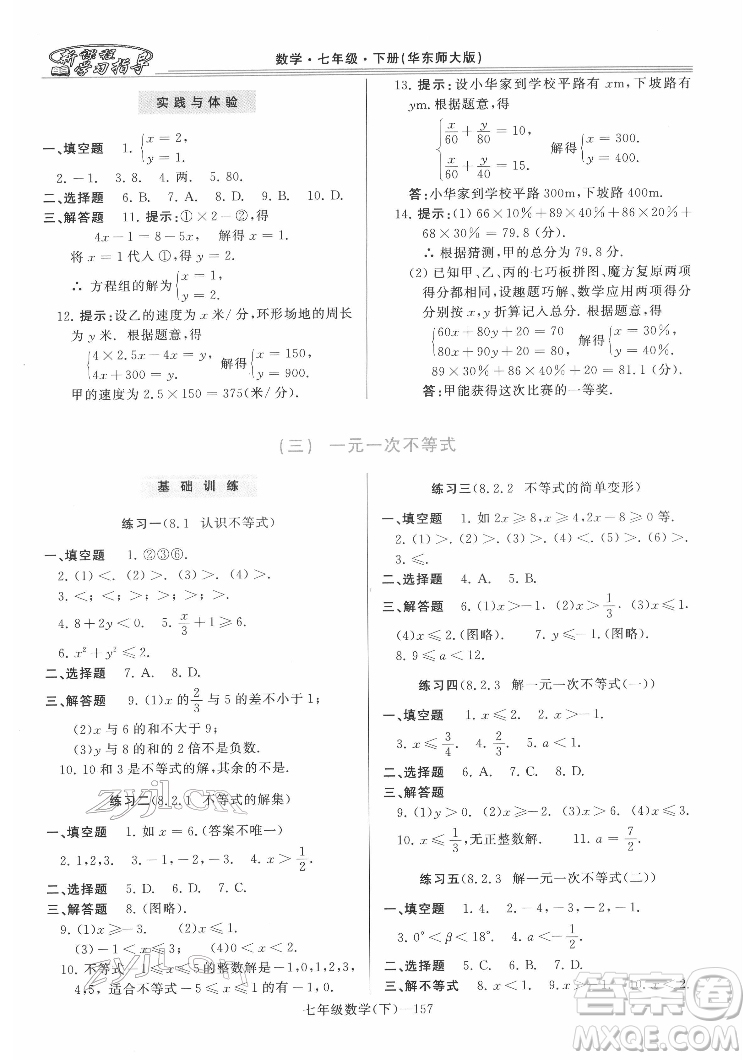 新课程
学习指导
数学·七年级·下册(华东师大版)
实践与体验
一、填空题 1. {x=2, y=1.
2. -1. 3. 8. 4. 两. 5. 80.
二、选择题 6. B. 7. A. 8. D. 9. B. 10. D.
三、解答题 11. 提示:①×2-②,得
4x-1-8-5x,解得x=1.
将x=1代人①,得y=2.
∴ 方程组的解为{x=1, y=2.
12. 提示:设乙的速度为x米/分,环形场地的周长
为y米. 根据题意,得
{4×2.5x-4x=y, 4x+300=y. 解得{x=150, y=900.
甲的速度为2.5×150=375(米/分)
13. 提示:设小华家到学校平路有xm,下坡路有
ym. 根据题意,得
{x/60+y/80=10, x/60+y/40=15. 解得{x=300. y=400.
答:小华家到学校平路300m,下坡路400m.
14. 提示:(1)66×10%+89×40%+86×20%+
68×30%=79.8(分)
∴ 根据猜测,甲的总分为79.8分.
(2) 已知甲、乙、丙的七巧板拼图、魔方复原两项
得分都相同,设趣题巧解、数学应用两项得
分分别按x,y折算记入总分. 根据题意,得
{60x+80y+20=70 80x+90y+20=80 解得{x=0.3, y=0.4.
89×30%+86×40%+20=81.1(分)
答:甲能获得这次比赛的一等奖.
(三) 一元一次不等式
基础训练
练习一(8.1 认识不等式)
一、填空题 1. ②③⑥.
2. (1)<. (2)>. (3)<. (4)>.
3. <; <; >; >; >; >.
4. 8+2y<0. 5. x/3+1≥6.
6. x²+y²≤2. 7. A. 8. D.
三、解答题 9. (1)x的2/3与5的差不小于1;
(2)x与6的和不大于9;
(3)y与8的和的2倍不是负数.
10. 10和3是不等式的解,其余的不是.
练习二(8.2.1 不等式的解集)
一、填空题 1. 如x=6. (答案不唯一)
2. 1,2,3. 3. -1. 4. x>1/2.
二、选择题 5. D. 6. D. 7. C.
三、解答题 8. (图略).
9. (1)x≥-5. (2)x≤1.
(3)-1<x≤3. (4)0<x<2.
10. 不等式-1≤x≤5的整数解有-1,0,1,2,3,
4,5,适合不等式-1<x<5的有0,1,2,3,4.
练习三(8.2.2 不等式的简单变形)
一、填空题 1. 如2x≥8,x≥4,2x-8≥0等.
2. (1)>. (2)<. (3)<. (4)<.
3. ≤.
二、选择题 4. A. 5. B.
三、解答题 6. (1)x>-1. (2)x>1/3. (3)x≤1.
(4)x≤2. (图略). 7. x≤0. (图略).
8. 9≤a<12.
练习四(8.2.3 解一元一次不等式(一))
一、填空题 1. x≤2. 2. x<-2.
二、选择题
三、解答题
9. (1)y>0. (2)x≤4.
10. x≤1/3,无正整数解. 11. a=7/2.
练习五(8.2.3 解一元一次不等式(二))
一、填空题 1. 4. 2. -4,-3,-2,-1.
二、选择题
三、解不等式
七年级数学(下)—157
zyjl.cn
答案圈